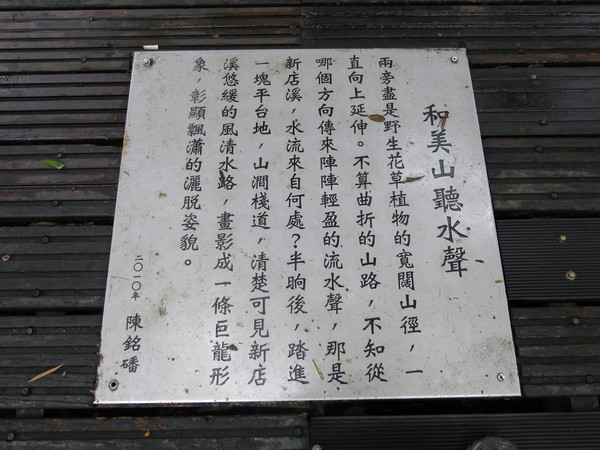 和美山聽水聲
兩旁盡是野生花草植物的寬闊山徑，一
直向上延伸。不算曲折的山路，不知從
哪個方向傳來陣陣輕盈的流水聲，那是
新店溪，水流來自何處？半晌後，踏進
一塊平台地，山澗棧道，清楚可見新店
溪悠緩的風清水路，畫影成一條巨龍形
象，彰顯飄瀟的灑脫姿貌。
二〇一〇年 陳銘磻